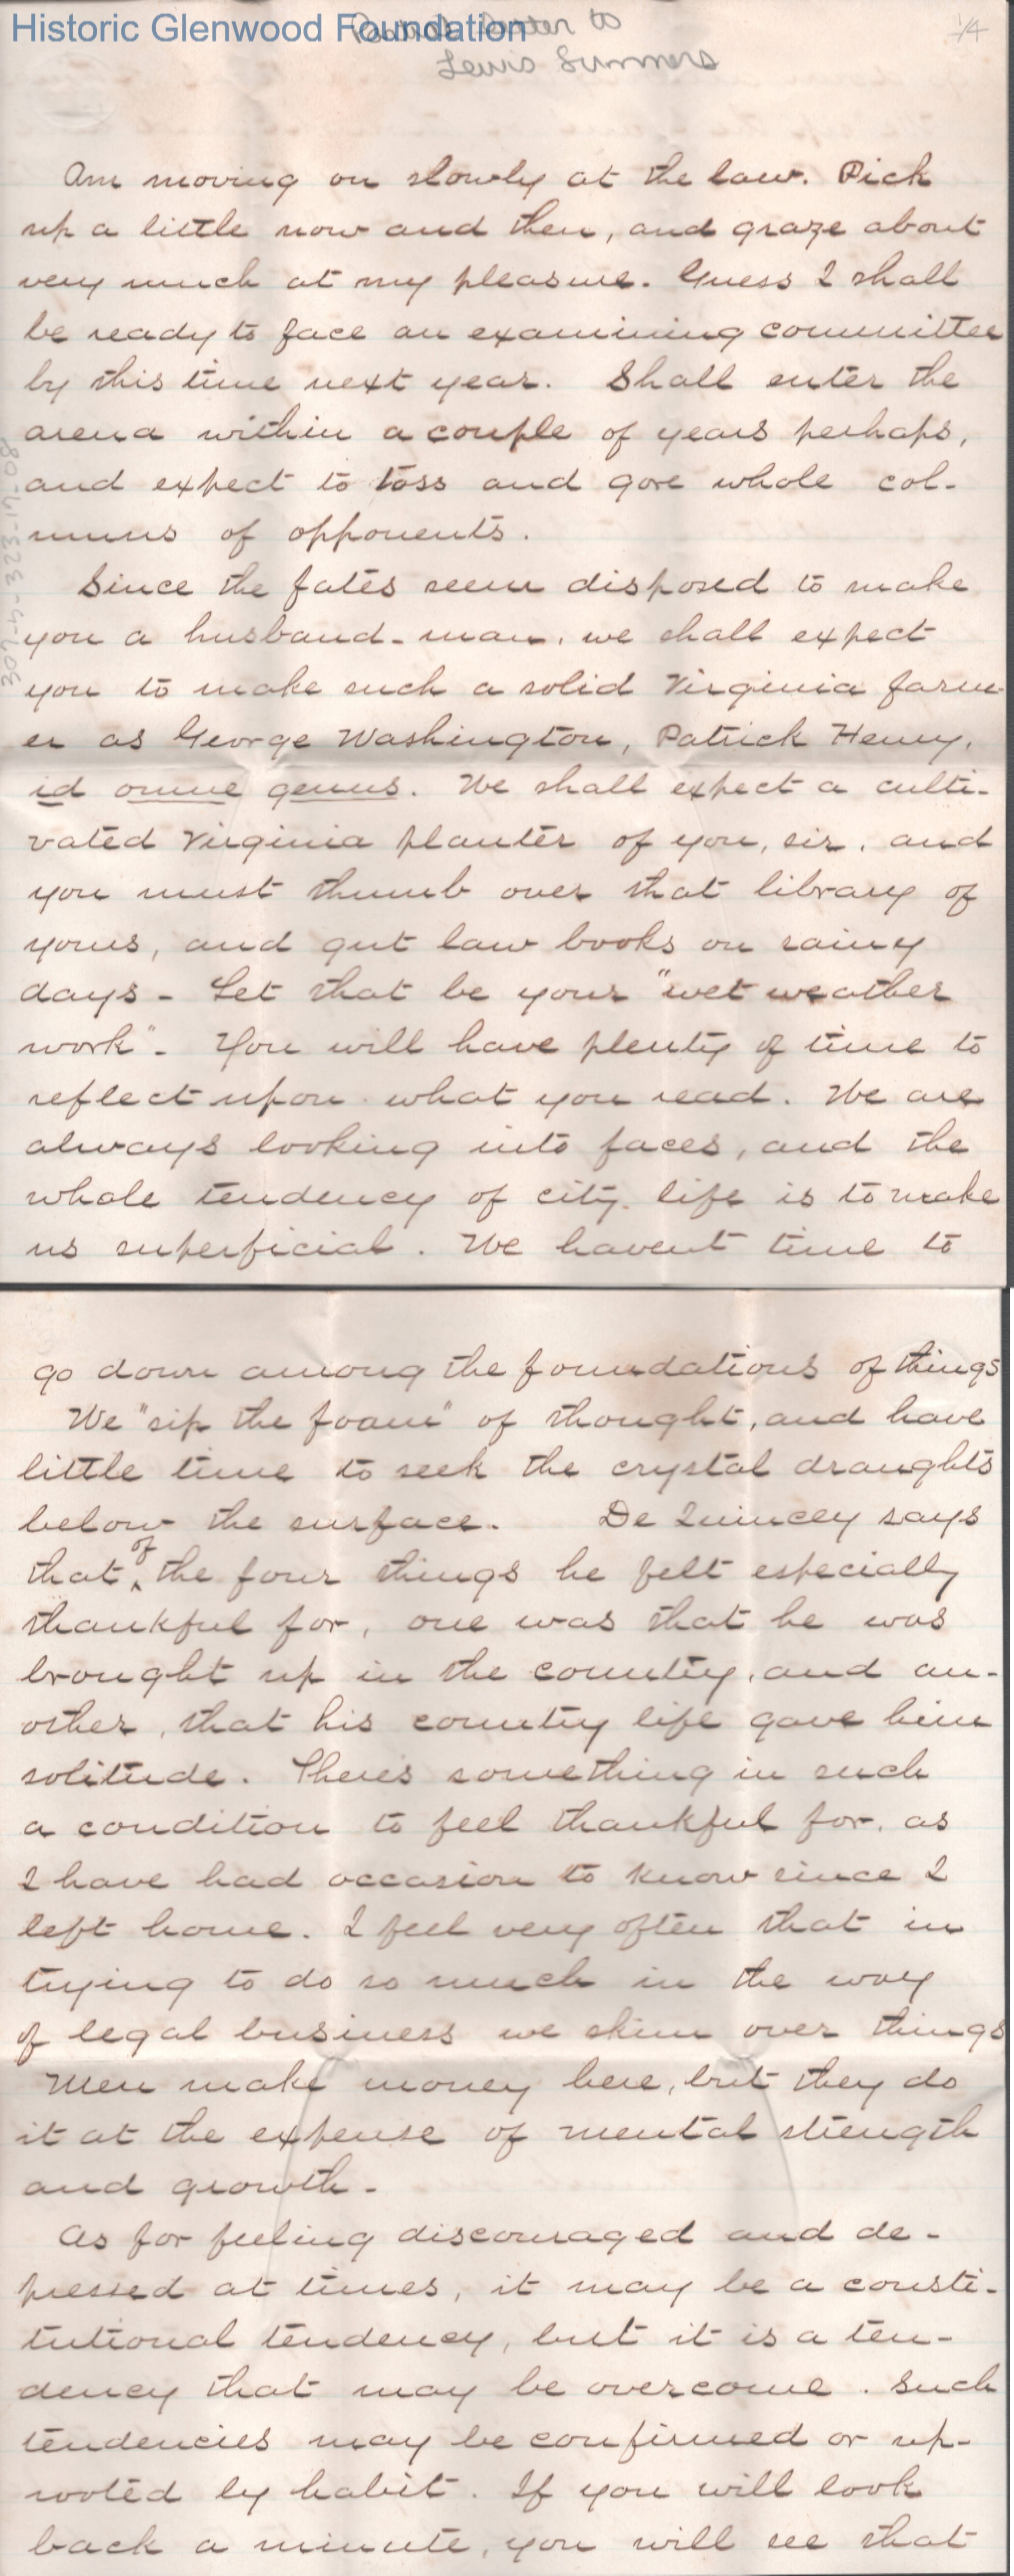 Historic Glenwood Foundation
to
Lewis Summers
1/4
Am moving on slowly at the law. Pick
up a little now and then, and graze about
very much at my pleasure. Guess I shall
be ready to face an examining committee
by this time next year. Shall enter the
arena within a couple of years perhaps,
and expect to toss and gore whole col-
umns of opponents.
Since the fates seem disposed to make
you a husband-man, we shall expect
you to make such a solid Virginia farm-
er as George Washington, Patrick Henry,
id omne genus. We shall expect a culti-
vated Virginia planter of you, sir, and
you must thumb over that library of
yours, and gut law books on rainy
days - Let that be your "wet weather
work". You will have plenty of time to
reflect upon what you read. We are
always looking into faces, and the
whole tendency of city life is to make
us superficial. We havent time to
go down among the foundations of things
We "sip the foam" of thought, and have
little time to seek the crystal draughts
below the surface. De Quincey says
that of the four things he felt especially
thankful for, one was that he was
brought up in the country, and an-
other, that his country life gave him
solitude. There's something in such
a condition to feel thankful for, as
I have had occasion to know since I
left home. I feel very often that in
trying to do so much in the way
of legal business we skim over things
Men make money here, but they do
it at the expense of mental strength
and growth.
As for feeling discouraged and de-
pressed at times, it may be a consti-
tutional tendency, but it is a ten-
dency that may be overcome. Such
tendencies may be confirmed or up-
rooted by habit. If you will look
back a minute, you will see that